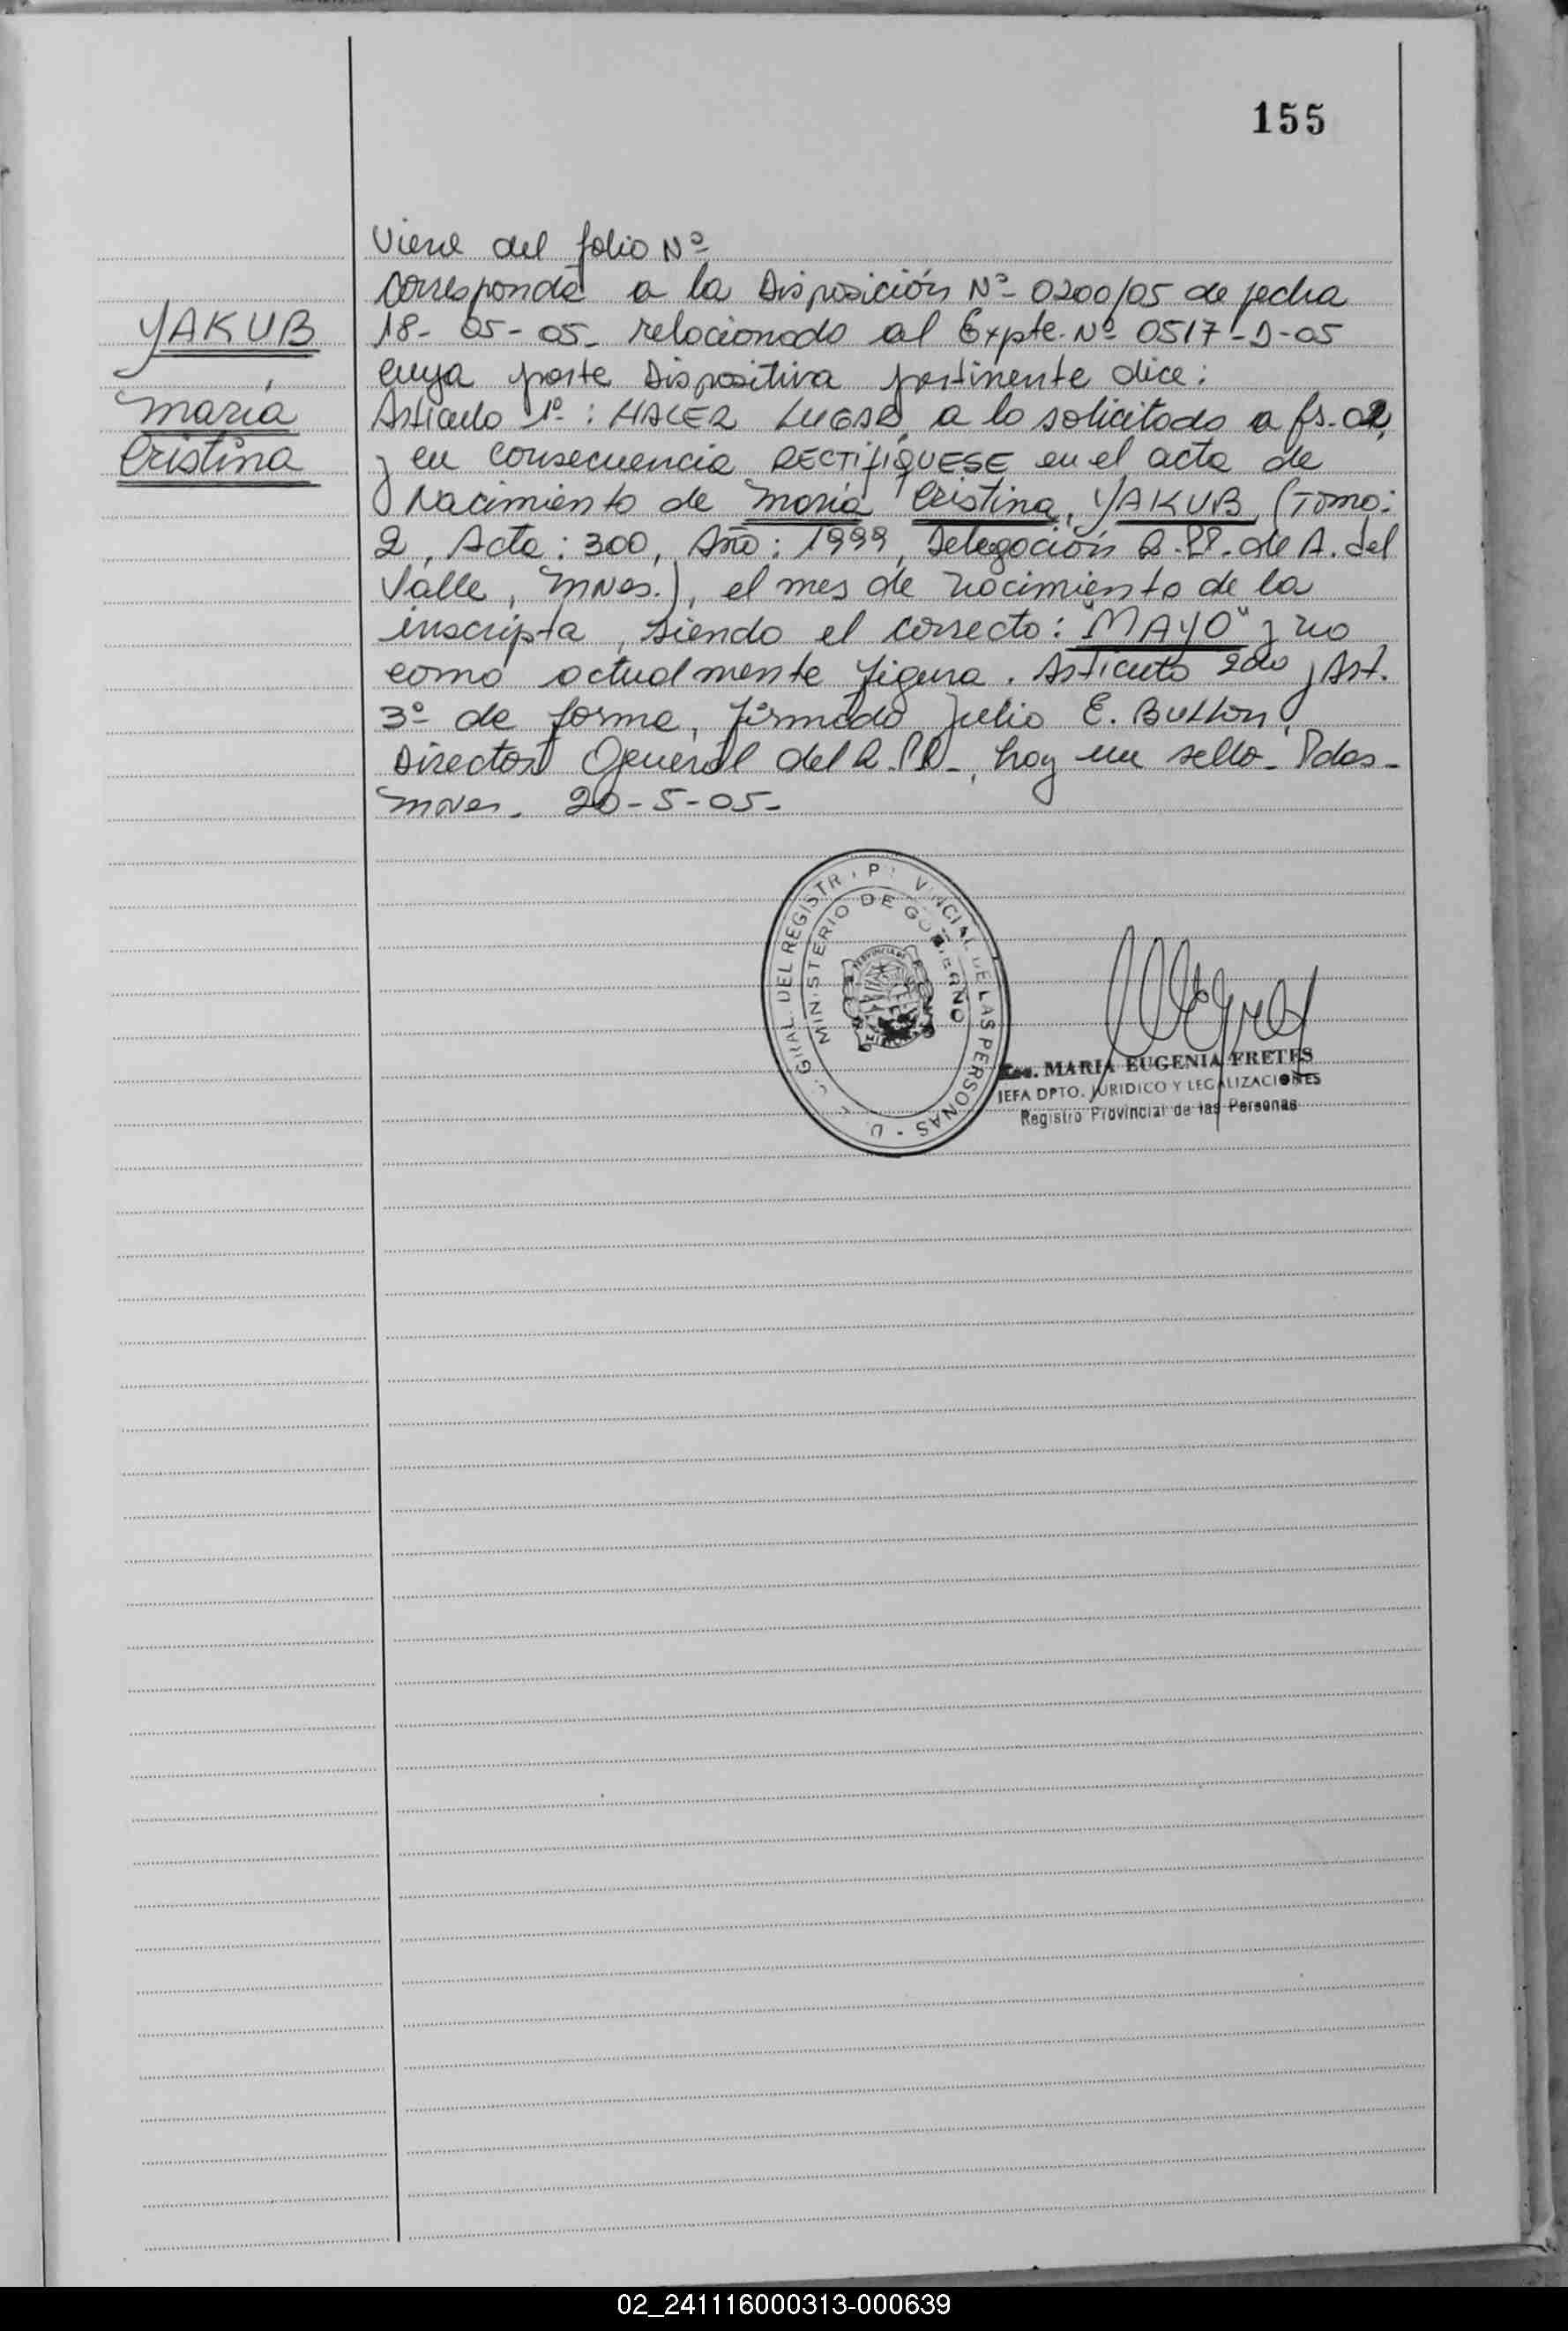 155
YAKUB
María
Cristina
Viene del folio Nº
Corresponde a la Disposición Nº 0200/05 de fecha
18-05-05- relacionado al Expte. Nº 0517-D-05
cuya parte Dispositiva pertinente dice:
Artículo 1º: HACER LUGAR, a lo solicitado a fs. 02,
y en consecuencia RECTIFIQUESE en el acta de
Nacimiento de María Cristina, YAKUB, (Tomo:
2, Acta: 300, Año: 1999, Delegación R.PP. de A. del
Valle, Mnes.), el mes de nacimiento de la
inscripta, siendo el correcto: "MAYO" y no
como actualmente figura. Artículo 2do y Art.
3º de forma, firmado Julio E. Button,
Director General del R.PP-, hay un sello- Pdas-
Mnes. 20-5-05-
GRAL. DEL REGISTR P VINCIAL DE LAS PERSONAS - D
MINISTERIO DE GOBIERNO
MARIA EUGENIA FRETES
JEFA DPTO. JURIDICO Y LEGALIZACIONES
Registro Provincial de las Personas
02_241116000313-000639